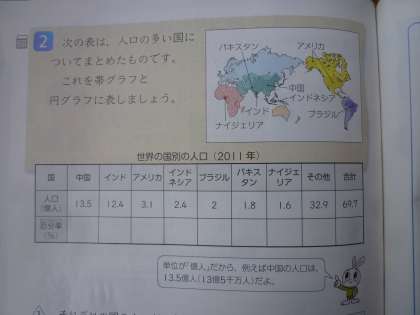 2 次の表は，人口の多い国に
ついてまとめたものです。
これを帯グラフと
円グラフに表しましょう。
パキスタン
アメリカ
中国
インドネシア
インド
ブラジル
ナイジェリア
世界の国別の人口（2011年）
国 中国 インド アメリカ インドネシア ブラジル パキスタン ナイジェリア その他 合計
人口（億人） 13.5 12.4 3.1 2.4 2 1.8 1.6 32.9 69.7
百分率（%）
単位が「億人」だから，例えば中国の人口は，
13.5億人（13億5千万人）だよ。